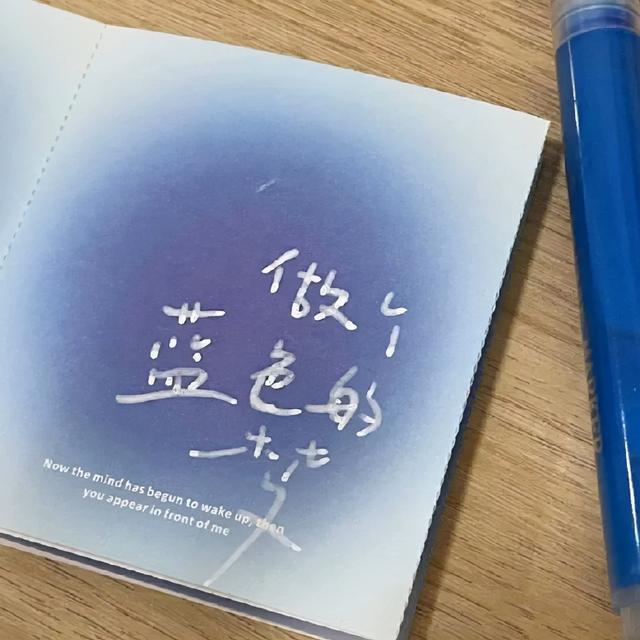 做个
蓝色的
梦
Now the mind has begun to wake up, then
you appear in front of me